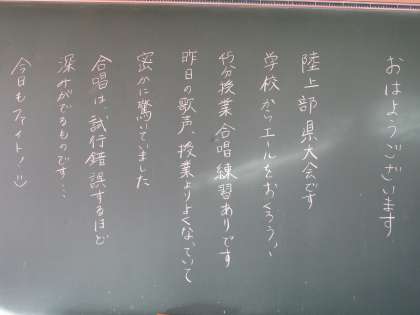 おはようございます
陸上部県大会です
学校からエールをおくろう!
45分授業 合唱練習ありです
昨日の歌声、授業よりよくなっていて
密かに驚いていました
合唱は、試行錯誤するほど
深みがでるものです…
今日もファイト!